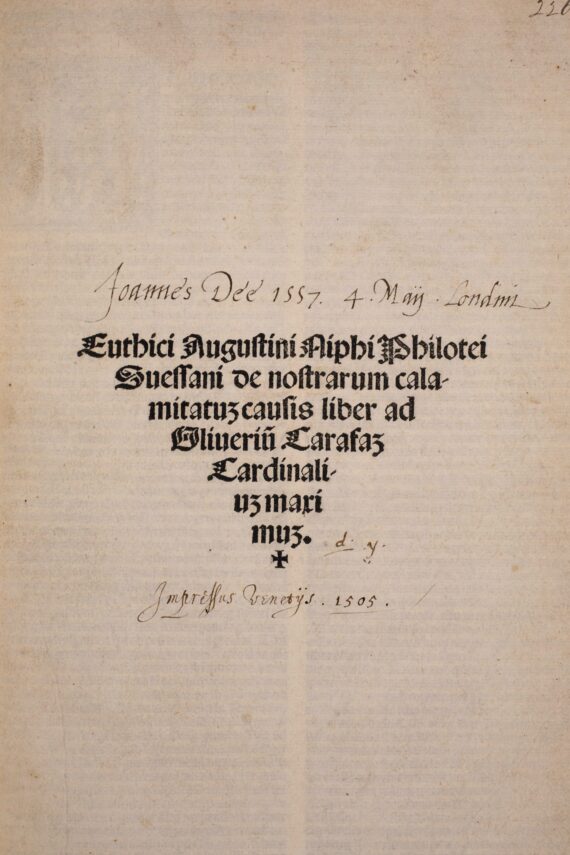 226
Joannes Dee 1557. 4. Maij. Londini
Euthici Augustini Niphi Philotei
Suessani de nostrarum cala-
mitatuʒ causis liber ad
Oliueriū Carafaʒ
Cardinali-
uʒ maxi
muʒ.
d. y.
Impressus Venetijs. 1505.